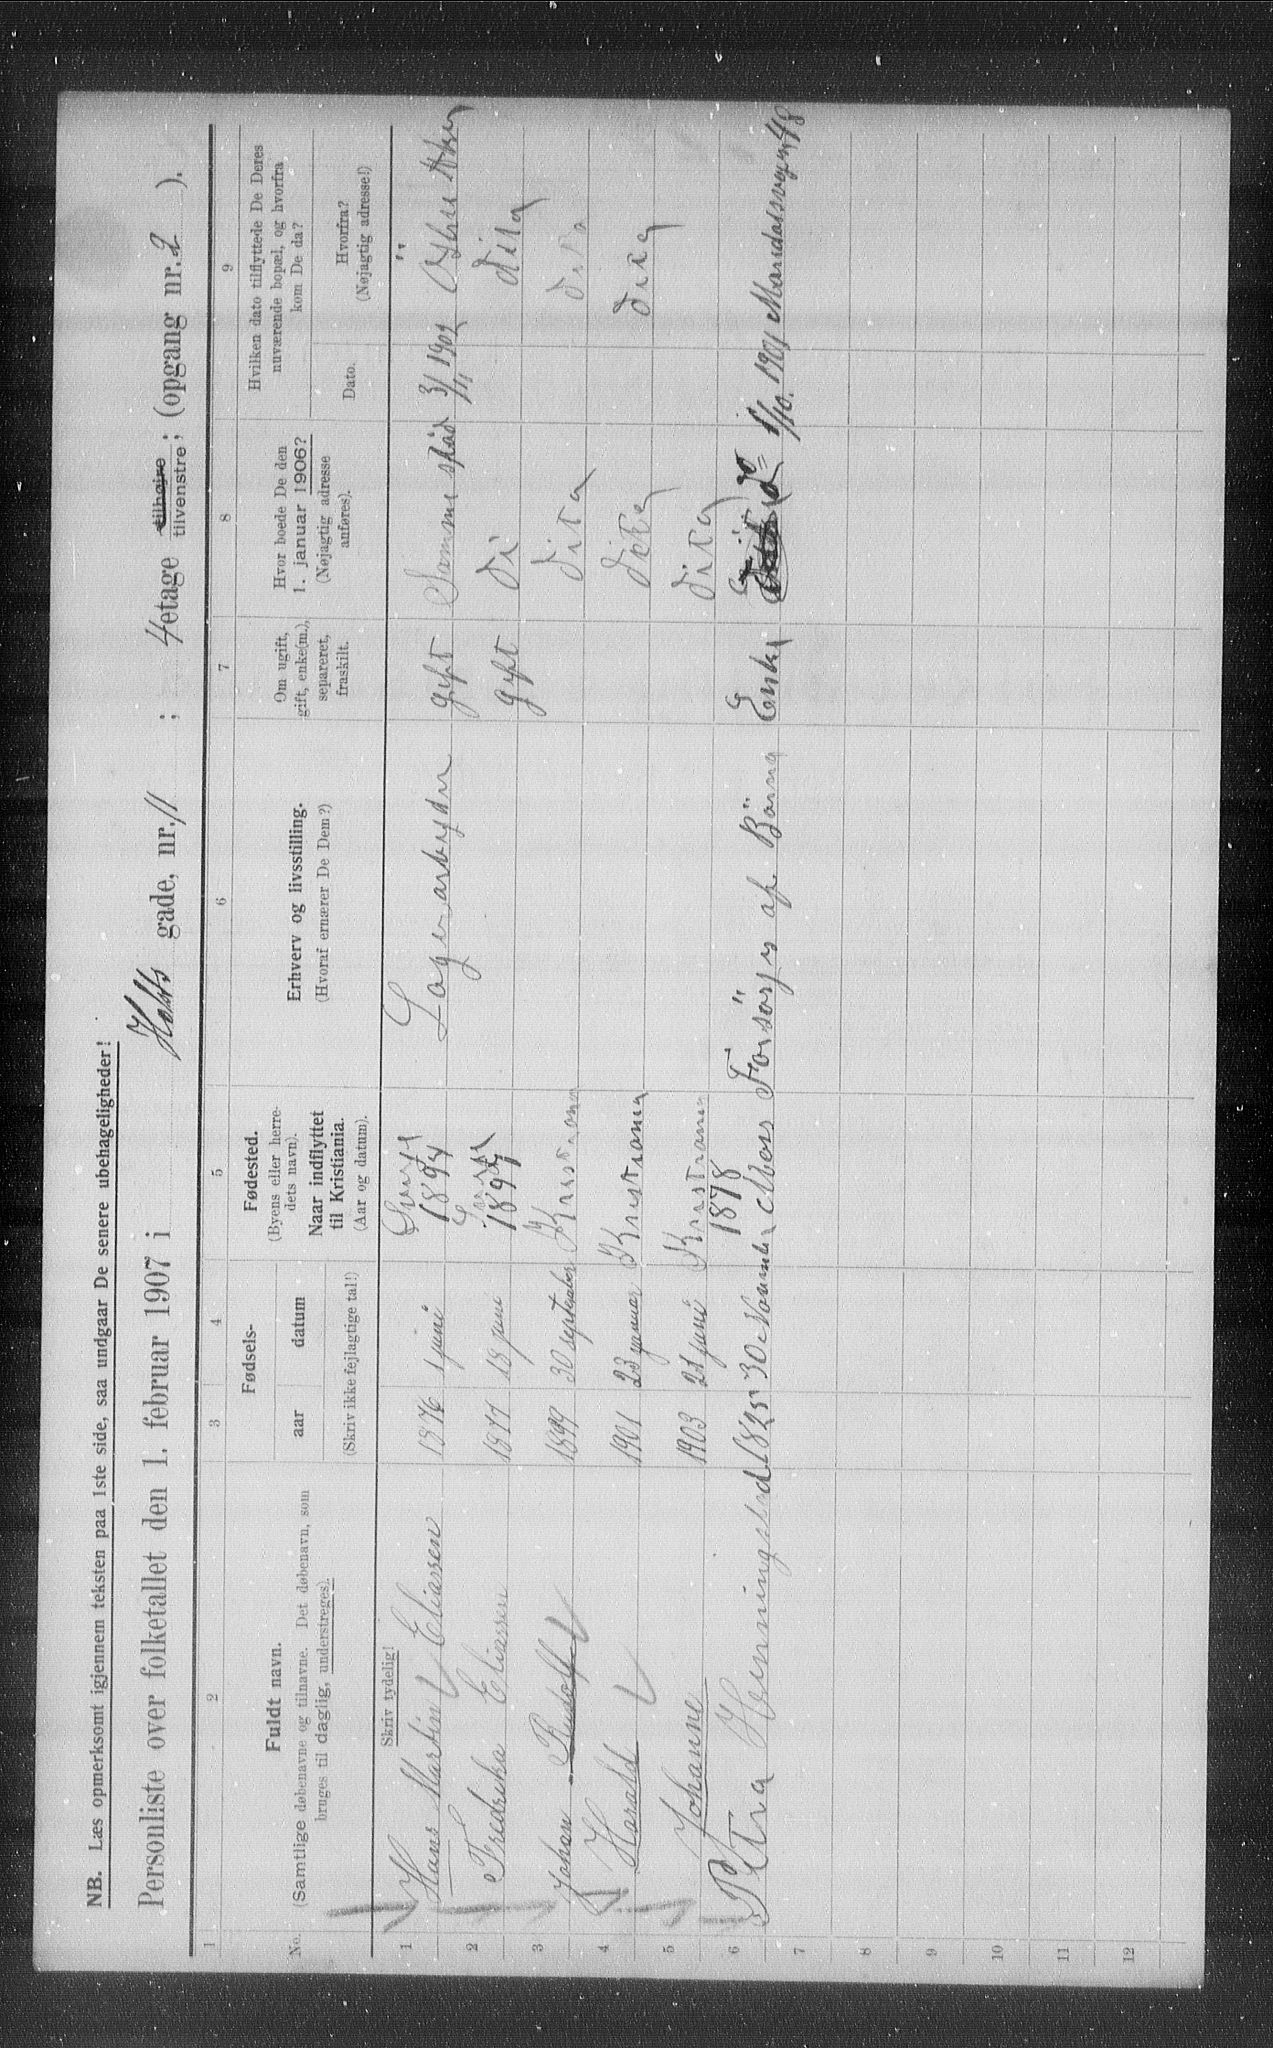 NB. Læs opmerksomt igjennem teksten paa 1ste side, saa undgaar De senere ubehageligheder!
Personliste over folketallet den 1. februar 1907 i Holsts gade, nr. 11 ; 4 etage tilhøjre tilvenstre; (opgang nr. 2 ).
1 2 3 4 5 6 7 8 9
No.
Fuldt navn.
(Samtlige døbenavne og tilnavne. Det døbenavn, som
bruges til daglig, understreges).
Fødsels-
aar datum
(Skriv ikke fejlagtige tal!)
Fødested.
(Byens eller herre-
dets navn).
Naar indflyttet
til Kristiania.
(Aar og datum).
Erhverv og livsstilling.
(Hvoraf ernærer De Dem?)
Om ugift,
gift, enke(m.),
separeret,
fraskilt.
Hvor boede De den
1. januar 1906?
(Nøjagtig adresse
anføres).
Hvilken dato tilflyttede De Deres
nuværende bopæl, og hvorfra
kom De da?
Dato.
Hvorfra?
(Nøjagtig adresse!)
Skriv tydelig!
1 Hans Martin Eliassen 1876 1 juni 1894 Lagerarbeyder gift Samme stad 3/11 1902
2 Fredrika Eliassen 1877 18 juni 1897 gift di dita
3 Johan Rudolf 1899 30 september Kristiania dita dita
4 Harald 1901 23 januar Kristiania dita dita
5 Johanne 1903 21 juni Kristiania dita
6 Petra Henningstad 1825 30 Novemb 1878 Moss Forsörges af Börna Enke do 1/10. 1901 Maridalsvejen 48
7
8
9
10
11
12